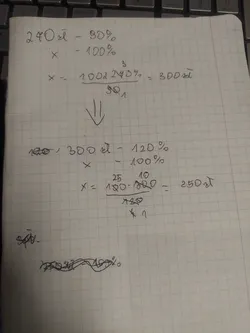 270 zł - 90%
x - 100%
x = 100 · 270% / 90 = 300 zł
300 zł - 120%
x - 100%
x = 100 · 300 / 120 = 250 zł